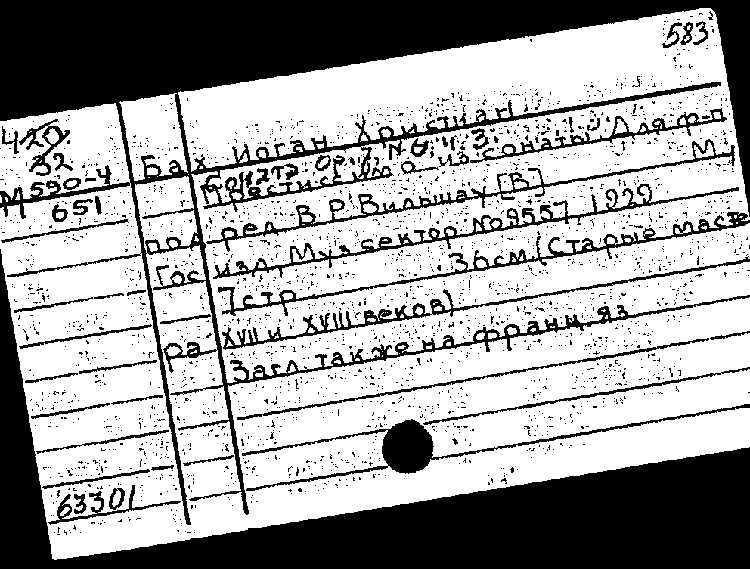 583
420
32
М 590-4
М 651
Бах Иоган Христиан
Соната. Ор. 7, № 6. ч. 3.
Престиссимо из сонаты Для ф-п
под ред В Р Вильшау [В] М,
Гос изд, Муз сектор № 9557, 1929
7 стр 36 см (Старые масте
ра XVII и XVIII веков)
Загл. также на франц. яз
63301